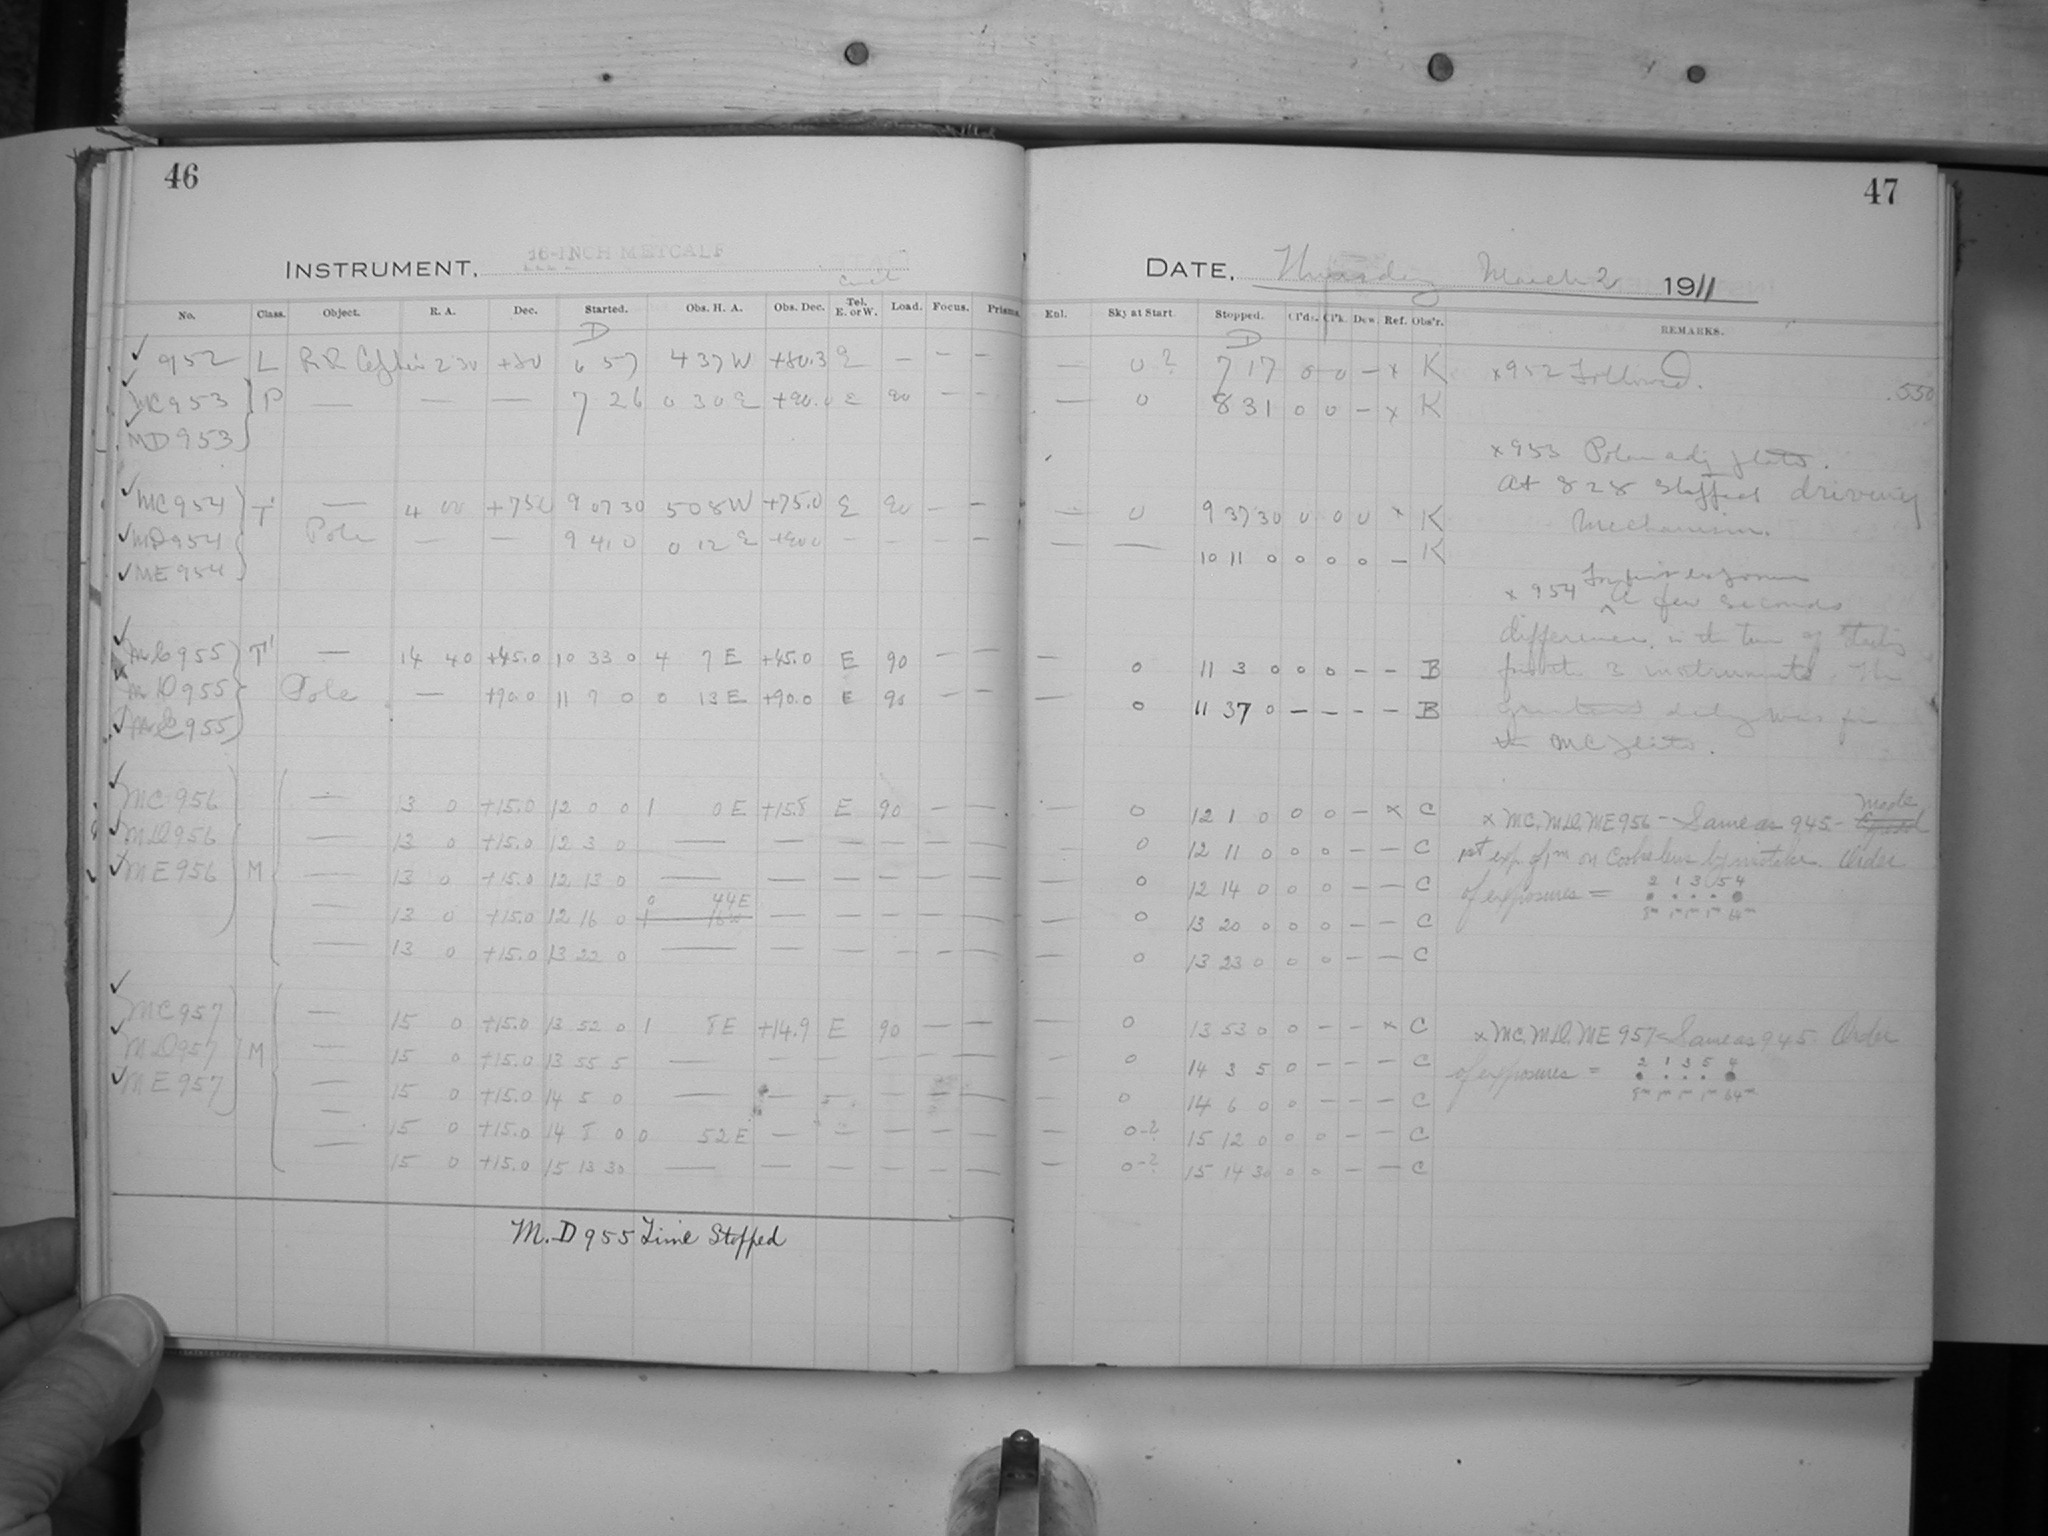 46
47
INSTRUMENT, 16-INCH METCALF
DATE, Thursday March 2 1911
No. Class. Object. R. A. Dec. Started. Obs. H. A. Obs. Dec. Tel. E. or W. Load. Focus. Prisms. Enl. Sky at Start. Stopped. Cl'ds. Cl'k. Dew. Ref. Obs'r. REMARKS.
D D
952 L RR Cephei 2 30 +80 6 57 4 37 W +80.3 E — — — — 0? 7 17 0 0 — x K x952 Followed.
MC 953 P — — — 7 26 0 30 E +90.0 E 90 — — — 0 8 31 0 0 — x K .550
MD 953
x953 Polar adj plate.
At 8 28 stopped driving
mechanism.
MC 954 T — 4 00 +75.0 9 07 30 5 08 W +75.0 E 90 — — — 0 9 37 30 0 0 0 x K
MD 954 Pole — — 9 41 0 0 12 E +90.0 — — — — — — 10 11 0 0 0 0 — K
ME 954
x 954 a few seconds
difference in the time of
MC 955 T — 14 40 +45.0 10 33 0 4 7 E +45.0 E 90 — — — 0 11 3 0 0 0 — — B
3 instruments. The
MD 955 Pole — +90.0 11 7 0 0 13 E +90.0 E 90 — — — 0 11 37 0 — — — — B
delay was for
ME 955
the MC plate.
MC 956 — 13 0 +15.0 12 0 0 1 0 E +15.8 E 90 — — — 0 12 1 0 0 0 — x C x MC, MD, ME 956 — Same as 945 — made
MD 956 — 13 0 +15.0 12 3 0 — — — — — — — 0 12 11 0 0 0 — — C 1st exp. of 1m on Cooke lens by mistake. Order
ME 956 M — 13 0 +15.0 12 13 0 — — — — — — — 0 12 14 0 0 0 — — C of exposures = 2 1 3 5 4
0 44 E
— 13 0 +15.0 12 16 0 — — — — — — 0 13 20 0 0 0 — — C 8m 1m 1m 1m 64m
— 13 0 +15.0 13 22 0 — — — — — — — 0 13 23 0 0 0 — — C
MC 957 — 15 0 +15.0 13 52 0 1 8 E +14.9 E 90 — — — 0 13 53 0 0 — — x C x MC, MD, ME 957 — Same as 945 Order
MD 957 M — 15 0 +15.0 13 55 5 — — — — — — — 0 14 3 5 0 — — — C of exposures = 2 1 3 5 4
ME 957 — 15 0 +15.0 14 5 0 — — — — — — — 0 14 6 0 0 — — — C 8m 1m 1m 1m 64m
— 15 0 +15.0 14 8 0 0 52 E — — — — — — 0-? 15 12 0 0 0 — — C
— 15 0 +15.0 15 13 30 — — — — — — — 0-? 15 14 30 0 0 — — C
M. D 955 Time Stopped